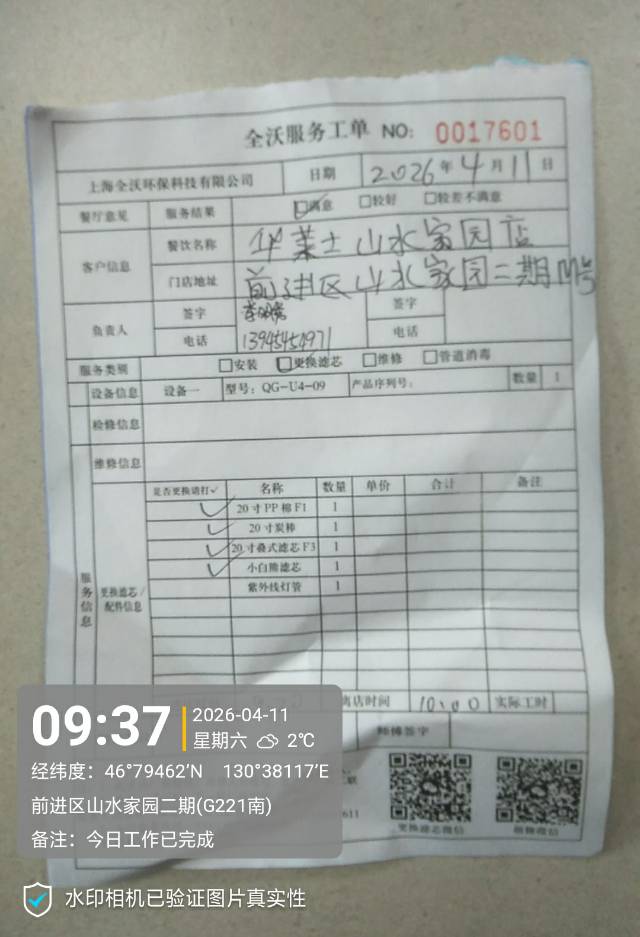 全沃服务工单 NO: 0017601
上海全沃环保科技有限公司 日期 2026年4月11日
餐厅意见 服务结果 ☑满意 □较好 □较差不满意
客户信息 餐饮名称 华莱士山水家园店
门店地址 前进区山水家园二期M号
负责人 签字 签字
电话 13945454971 电话
服务类别 □安装 ☑更换滤芯 □维修 □管道消毒
设备信息 设备一 型号: QG-U4-09 产品序列号: 数量 1
检修信息
维修信息
是否更换请打✓ 名称 数量 单价 合计 备注
✓ 20寸PP棉F1 1
✓ 20寸炭棒 1
✓ 20寸叠式滤芯F3 1
✓ 小白熊滤芯 1
紫外线灯管 1
服务信息 更换滤芯/配件信息
离店时间 10:00 实际工时
师傅签字
611
更换滤芯微信
09:37 2026-04-11
星期六 2℃
经纬度: 46°79462′N 130°38117′E
前进区山水家园二期(G221南)
备注: 今日工作已完成
水印相机已验证图片真实性